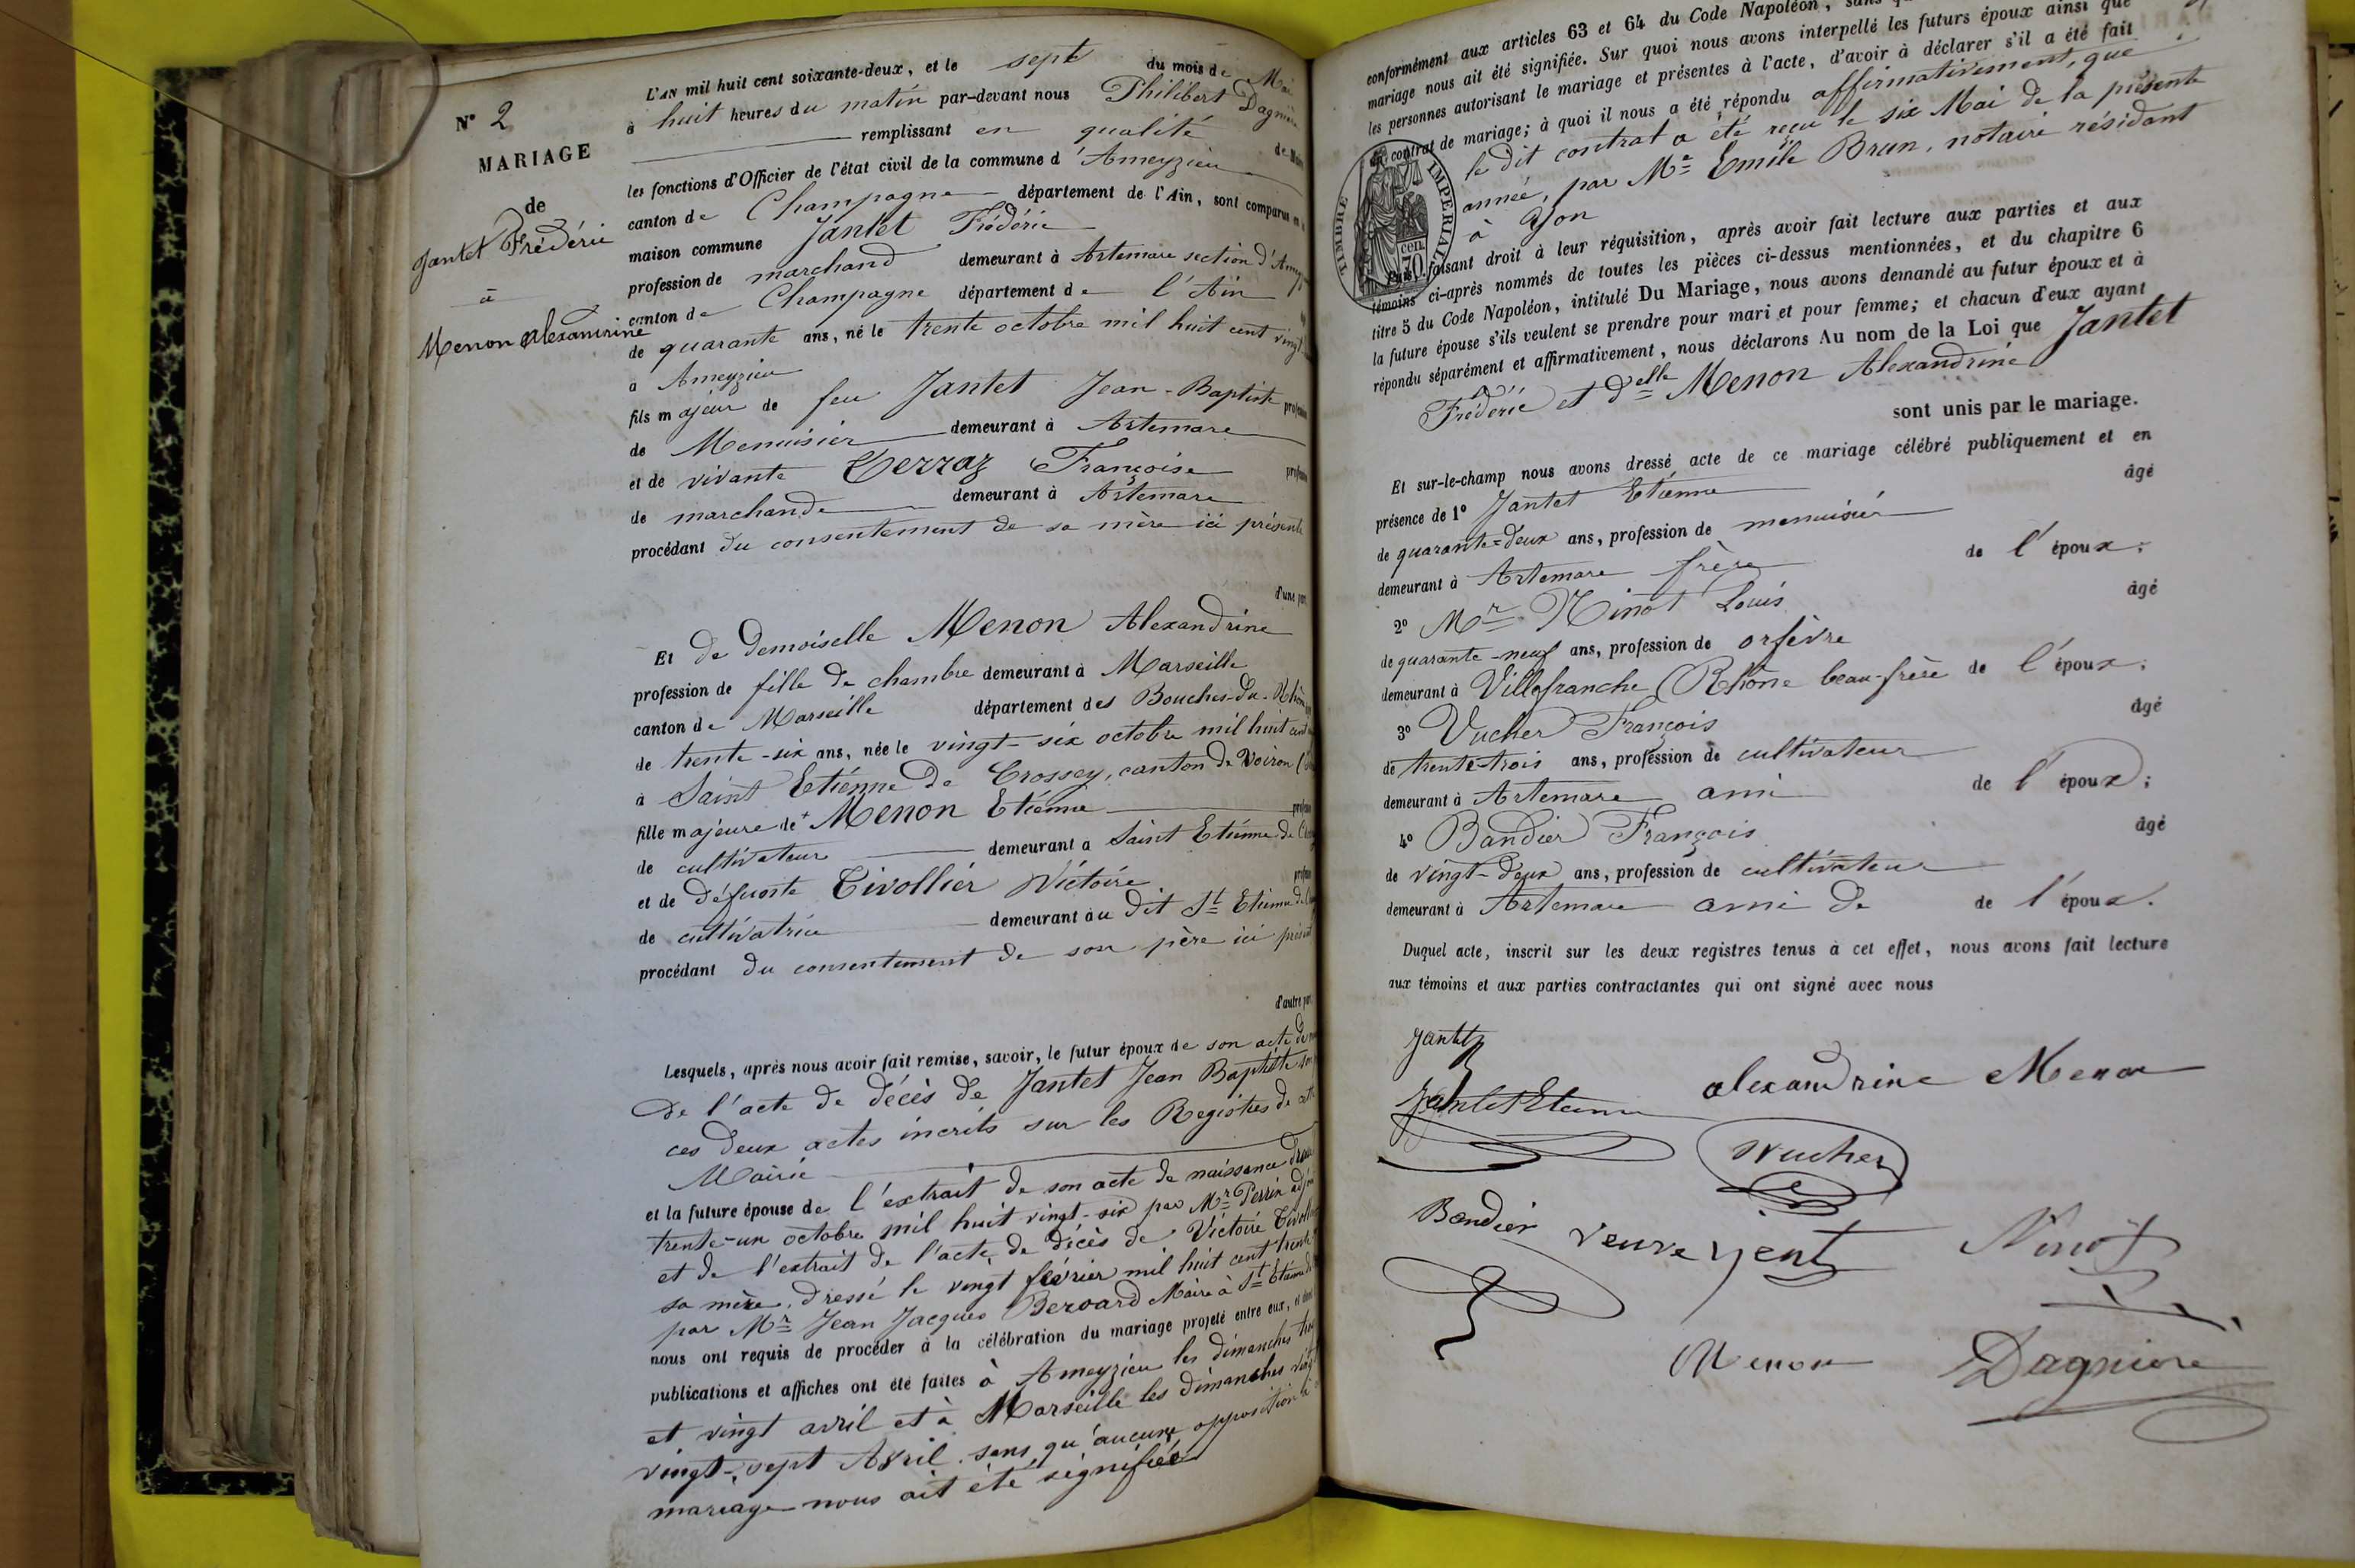 N° 2
MARIAGE
de
Jantet Frédéric
à
Menon Alexandrine
L'AN mil huit cent soixante-deux, et le sept du mois de Mai
à huit heures du matin par-devant nous Philibert Dagnière
remplissant en qualité de Maire
les fonctions d'Officier de l'état civil de la commune d'Ameyzieu
canton de Champagne département de l'Ain, sont comparus en
maison commune Jantet Frédéric
profession de marchand demeurant à Artemare section d'
canton de Champagne département de l'Ain
de quarante ans, né le trente octobre mil huit cent vingt
à Ameyzieu
fils majeur de feu Jantet Jean-Baptiste
de Menuisier demeurant à Artemare
et de vivante Françoise
de marchande demeurant à Artemare
procédant du consentement de sa mère ici présente
d'une part
Et de demoiselle Menon Alexandrine
profession de fille de chambre demeurant à Marseille
canton de Marseille département des Bouches-du-Rhône
de trente-six ans, née le vingt-six octobre mil huit cent
à Saint Etienne de Crossey, canton de Voiron
fille majeure de Menon Etienne
de cultivateur demeurant à Saint Etienne de
et de défunte Tivollier Victoire
de cultivatrice demeurant au dit St Etienne de
procédant du consentement de son père ici présent
d'autre part
Lesquels, après nous avoir fait remise, savoir, le futur époux de son acte de
De l'acte de décès de Jantet Jean Baptiste son
ces deux actes incrits sur les Registres de cette
Mairie
et la future épouse de l'extrait de son acte de naissance
trente-un octobre mil huit vingt-six par Mr Perrin
et de l'extrait de l'acte de décès de Victoire
sa mère, dressé le vingt février mil huit cent trente
par Mr Jean Jacques Maire à St Etienne de
nous ont requis de procéder à la célébration du mariage projeté entre eux, et dont
publications et affiches ont été faites à Ameyzieu les dimanches
et vingt avril et à Marseille les dimanches vingt
vingt-sept Avril sans qu'aucune opposition à
mariage nous ait été signifiée
conformément aux articles 63 et 64 du Code Napoléon,
mariage nous ait été signifiée. Sur quoi nous avons interpellé les futurs époux ainsi que
les personnes autorisant le mariage et présentes à l'acte, d'avoir à déclarer s'il a été fait
contrat de mariage; à quoi il nous a été répondu affirmativement, que
le dit contrat a été reçu le six Mai de la présente
année, par Me Emile Brun, notaire résidant
à Yon
TIMBRE IMPERIAL
70 cen.
faisant droit à leur réquisition, après avoir fait lecture aux parties et aux
témoins ci-après nommés de toutes les pièces ci-dessus mentionnées, et du chapitre 6
titre 5 du Code Napoléon, intitulé Du Mariage, nous avons demandé au futur époux et à
la future épouse s'ils veulent se prendre pour mari et pour femme; et chacun d'eux ayant
répondu séparément et affirmativement, nous déclarons Au nom de la Loi que Jantet
Frédéric et Delle Menon Alexandrine
sont unis par le mariage.
Et sur-le-champ nous avons dressé acte de ce mariage célébré publiquement et en
présence de 1° Jantet Etienne âgé
de quarante-deux ans, profession de menuisier
demeurant à Artemare frère de l'époux;
2° Mr Ninot Louis âgé
de quarante-neuf ans, profession de orfèvre
demeurant à Villefranche (Rhône beau-frère de l'époux;
3° Vucher François âgé
de trente-trois ans, profession de cultivateur
demeurant à Artemare ami de l'époux;
4° Bandier François âgé
de vingt-deux ans, profession de cultivateur
demeurant à Artemare ami de de l'époux.
Duquel acte, inscrit sur les deux registres tenus à cet effet, nous avons fait lecture
aux témoins et aux parties contractantes qui ont signé avec nous
Jantet
alexandrine Menon
Jantet Etienne
Vucher
Bandier
veuve
Ninot
Menon
Dagnière